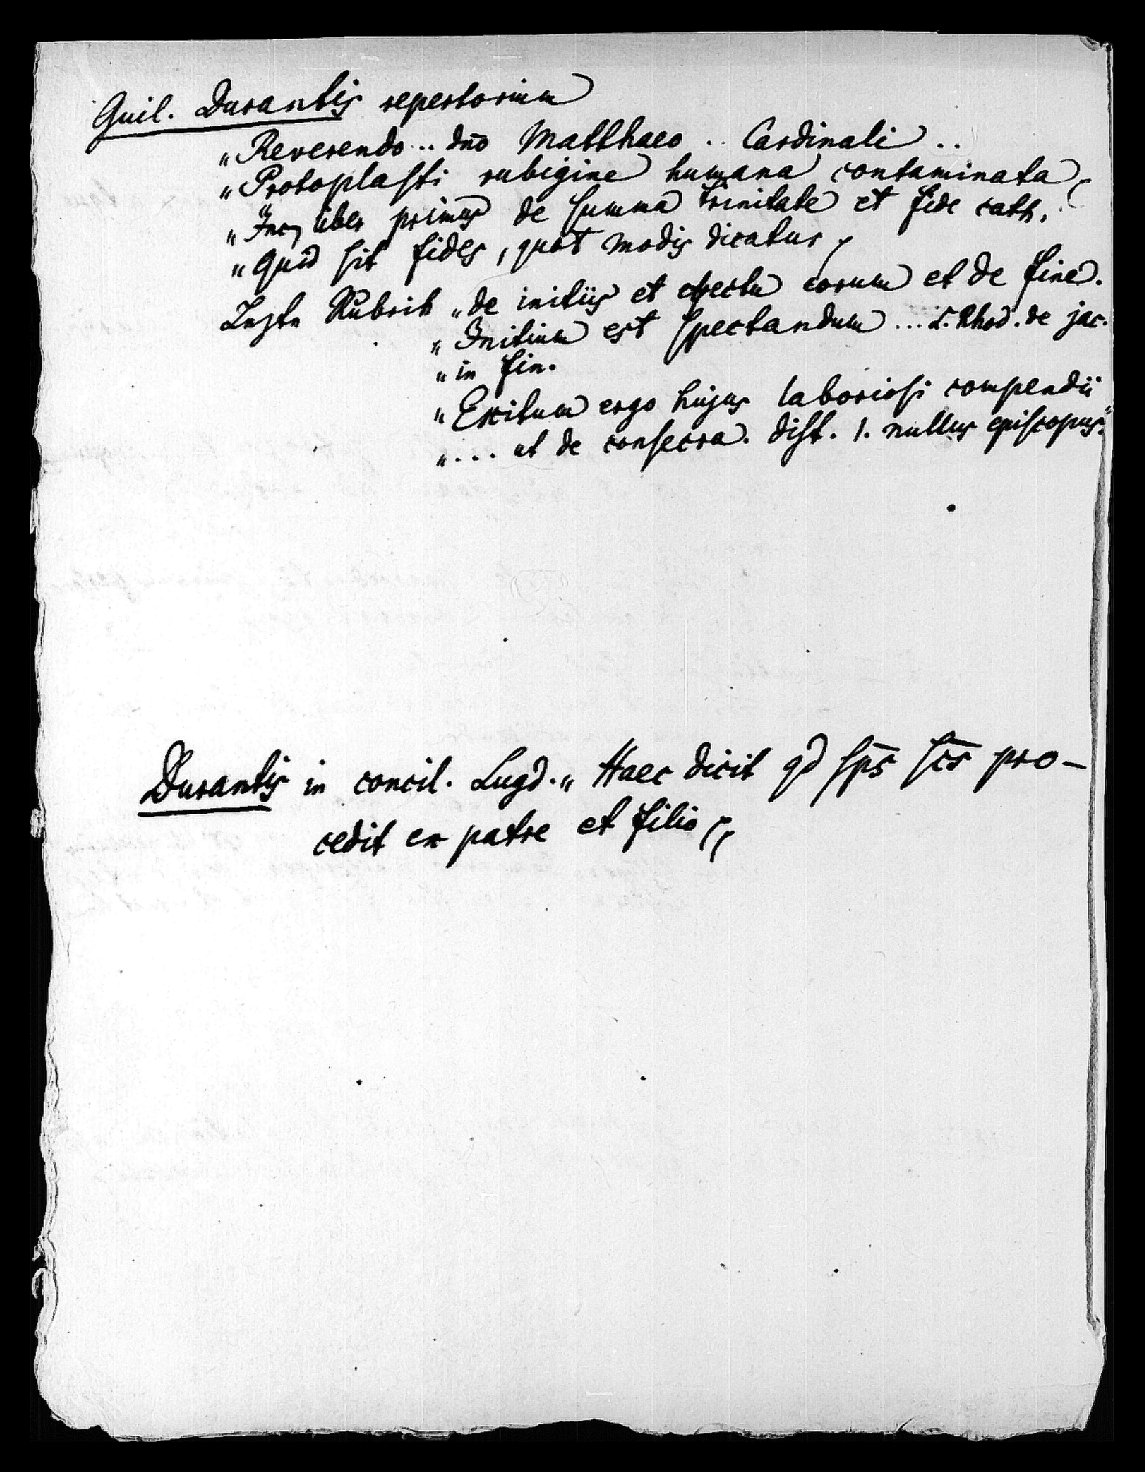 Guil. Durantis repertorium
„Reverendo .. dno Matthaeo .. Cardinali ..
„Protoplasti rubigine humana contaminata
„Inc. liber primus de summa trinitate et fide cath.
„Quid sit fides, quot modis dicatur
Lezte Rubrik „de initiis et effectu eorum et de fine.
„Initium est spectandum ... L. Rhod. de jac.
„in fin.
„Exitum ergo hujus laboriosi compendii
„... ut de consecra. dist. 1. nullus episcopus."
Durantis in concil. Lugd. „Haec dicit qd sps scs pro-
cedit ex patre et filio